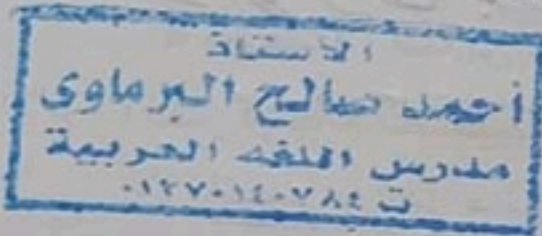 الاستاذ
أحمد صالح البرماوى
مدرس اللغه العربية
ت ٠١٢٧٠١٤٠٧٨٤